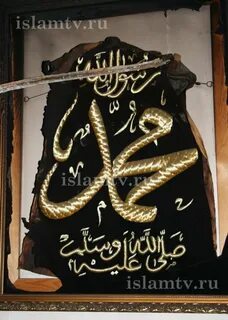 islamtv.ru
رسول الله
محمد
islamtv.ru
صلى الله
عليه وسلم
islamtv.ru